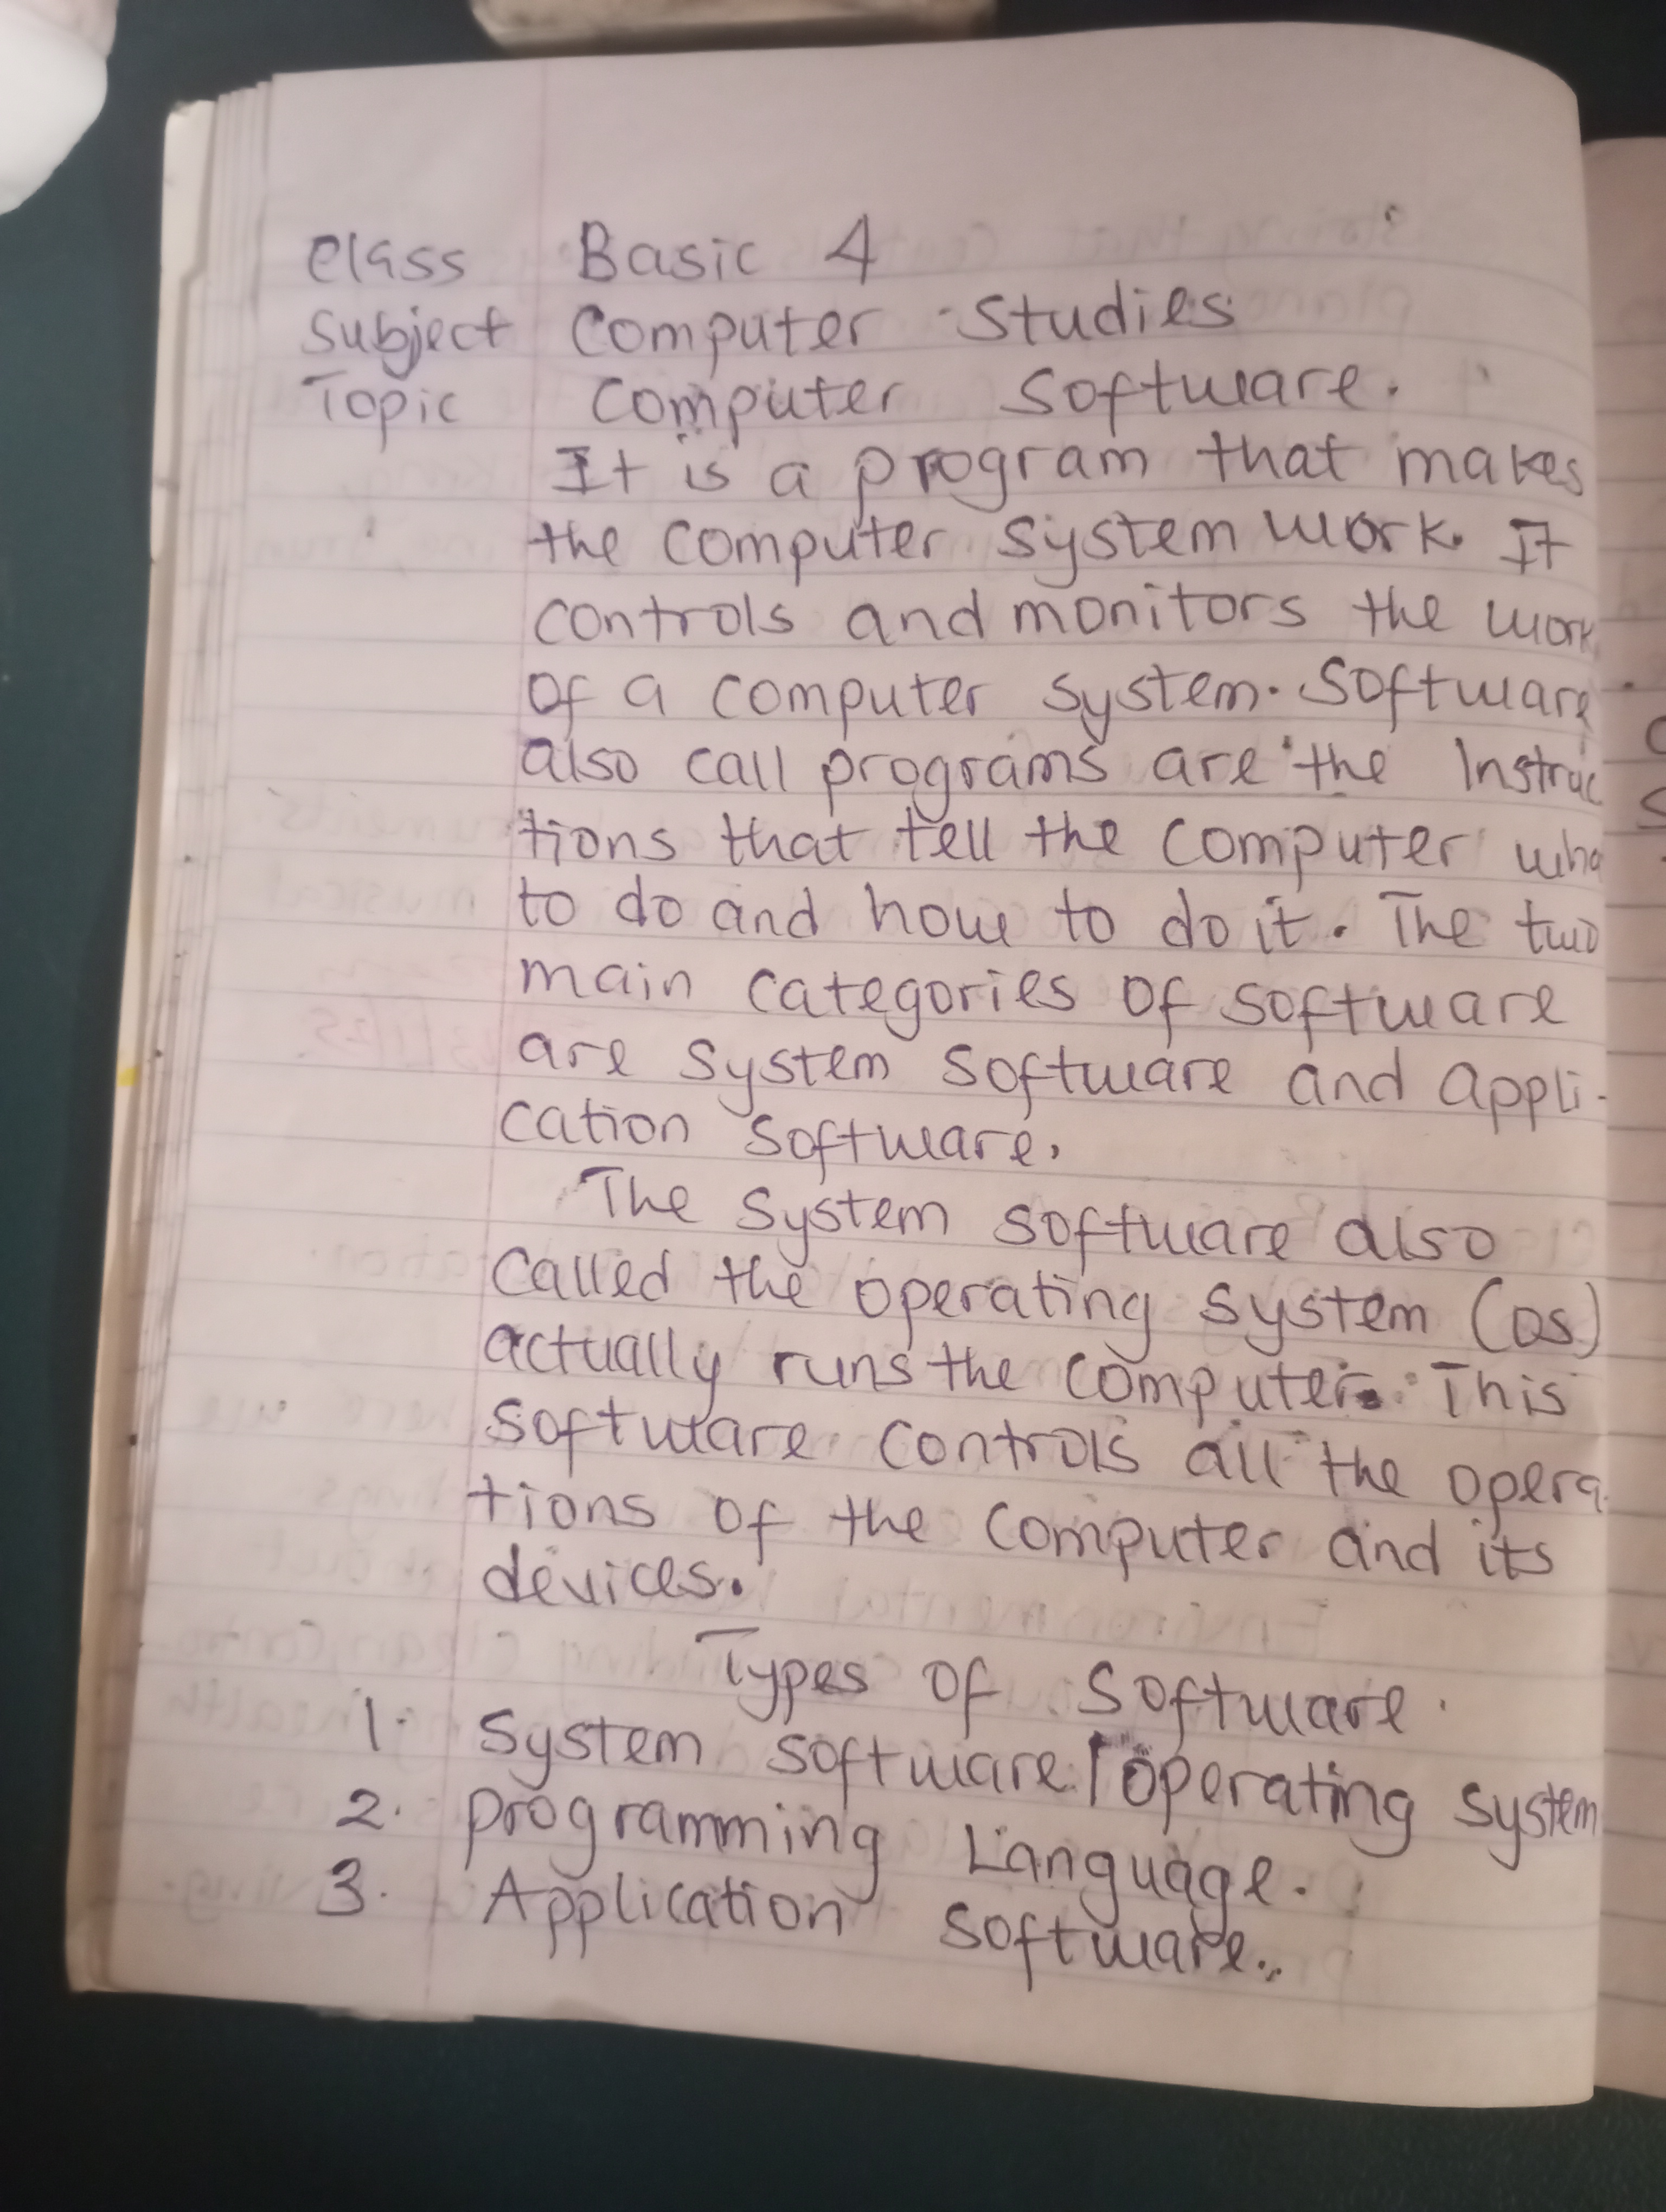 Class Basic 4
Subject Computer Studies
Topic Computer Software.
It is a program that makes
the computer system work. It
controls and monitors the work
of a computer system. Software
also call programs are the Instruc
tions that tell the computer wha
to do and how to do it. The two
main categories of software
are system software and appli-
cation software.
The system software also
called the operating system (os)
actually runs the computer. This
software controls all the opera
tions of the computer and its
devices.
Types of Software.
1. System software/operating system
2. programming Language.
3. Application software.